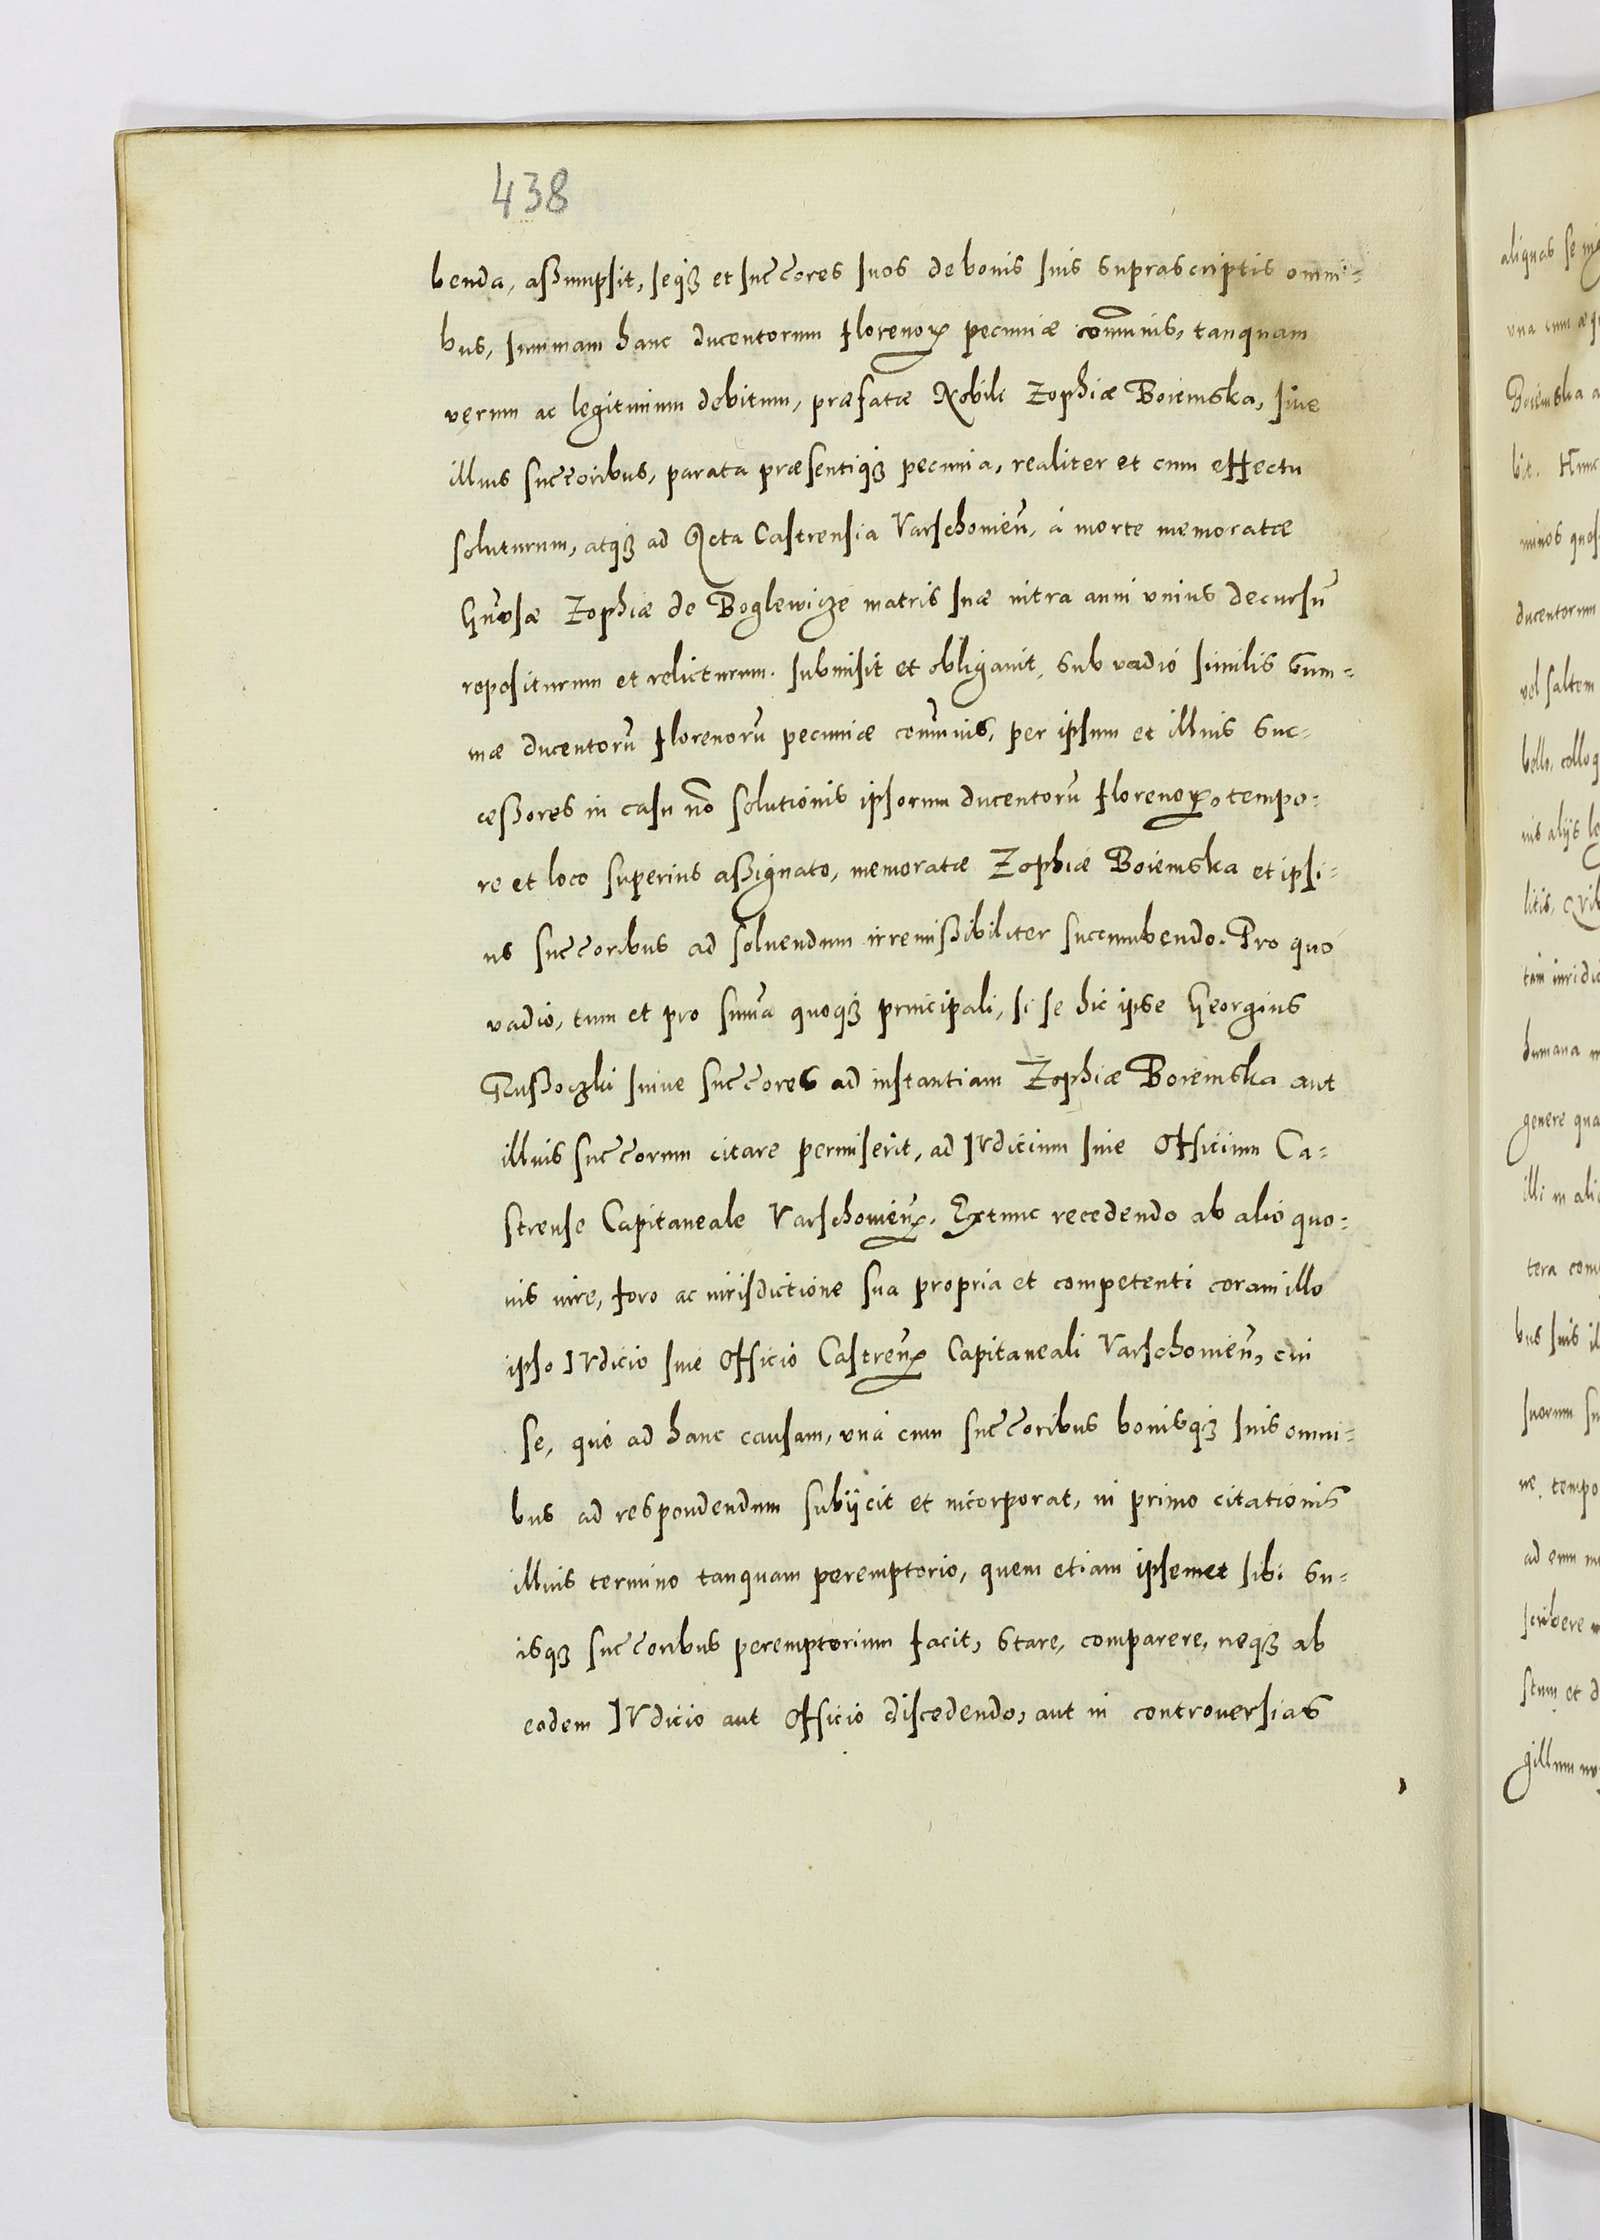 438
benda, assumpsit, seqꝫ et succores suos de bonis suis suprascriptis omni-
bus, summam hanc ducentorum florenoꝝ pecuniæ com̄unis, tanquam
verum ac legitimum debitum, præfatæ Nobili Zophiæ Boiemska, siue
illius succoribus, parata præsentiqꝫ pecunia, realiter et cum effectu
soluturum, atqꝫ ad Acta Castrensia Varschouień, á morte memoratæ
Zophiæ de Boglewicze matris suæ intra anni vnius decursū
repositurum et relicturum. submisit et obligauit, sub vadió similis sum-
mæ ducentorū florenorū pecuniæ com̄unis, per ipsum et illius suc-
cessores in casu nō solutionis ipsorum ducentorū florenoꝝ, tempo-
re et loco superius assignato, memoratæ Zophiæ Boiemska et ipsi-
us succoribus ad soluendum irremissibiliter succumbendo. Pro quó
vadió, tum et pro sum̄a quoqꝫ principali, si se hic ipse Georgius
suiue succores ad instantiam Zophiæ Boiemska aut
illius succorum citare permiserit, ad IVdicium siue Officium Ca-
strense Capitaneale Varschouień. Extunc recedendo ab alió quo-
uis iure, foro ac iurisdictione sua propria et competenti coram illo
ipso IVdicio siue Offició Castreń Capitaneali Varschouień, cui
se, quó ad hanc causam, vná cum succoribus bonisqꝫ suis omni-
bus ad respondendum subijcit et incorporat, in primo citationis
illius termino tanquam peremptorio, quem etiam ipsemet sibi su-
isqꝫ succoribus peremptorium facit, stare, comparere, neqꝫ ab
eodem IVdicio aut Offició discedendo, aut in controuersias
aliquas se
vna cum
Boiemska a
bit. Hunc
minos
ducentorum
vel saltem
bello,
nis alijs
litis,
humana
genere
illi in
tera
bus suis
suorum
ne, tempo
ad eum
scribere
stum et
gillum